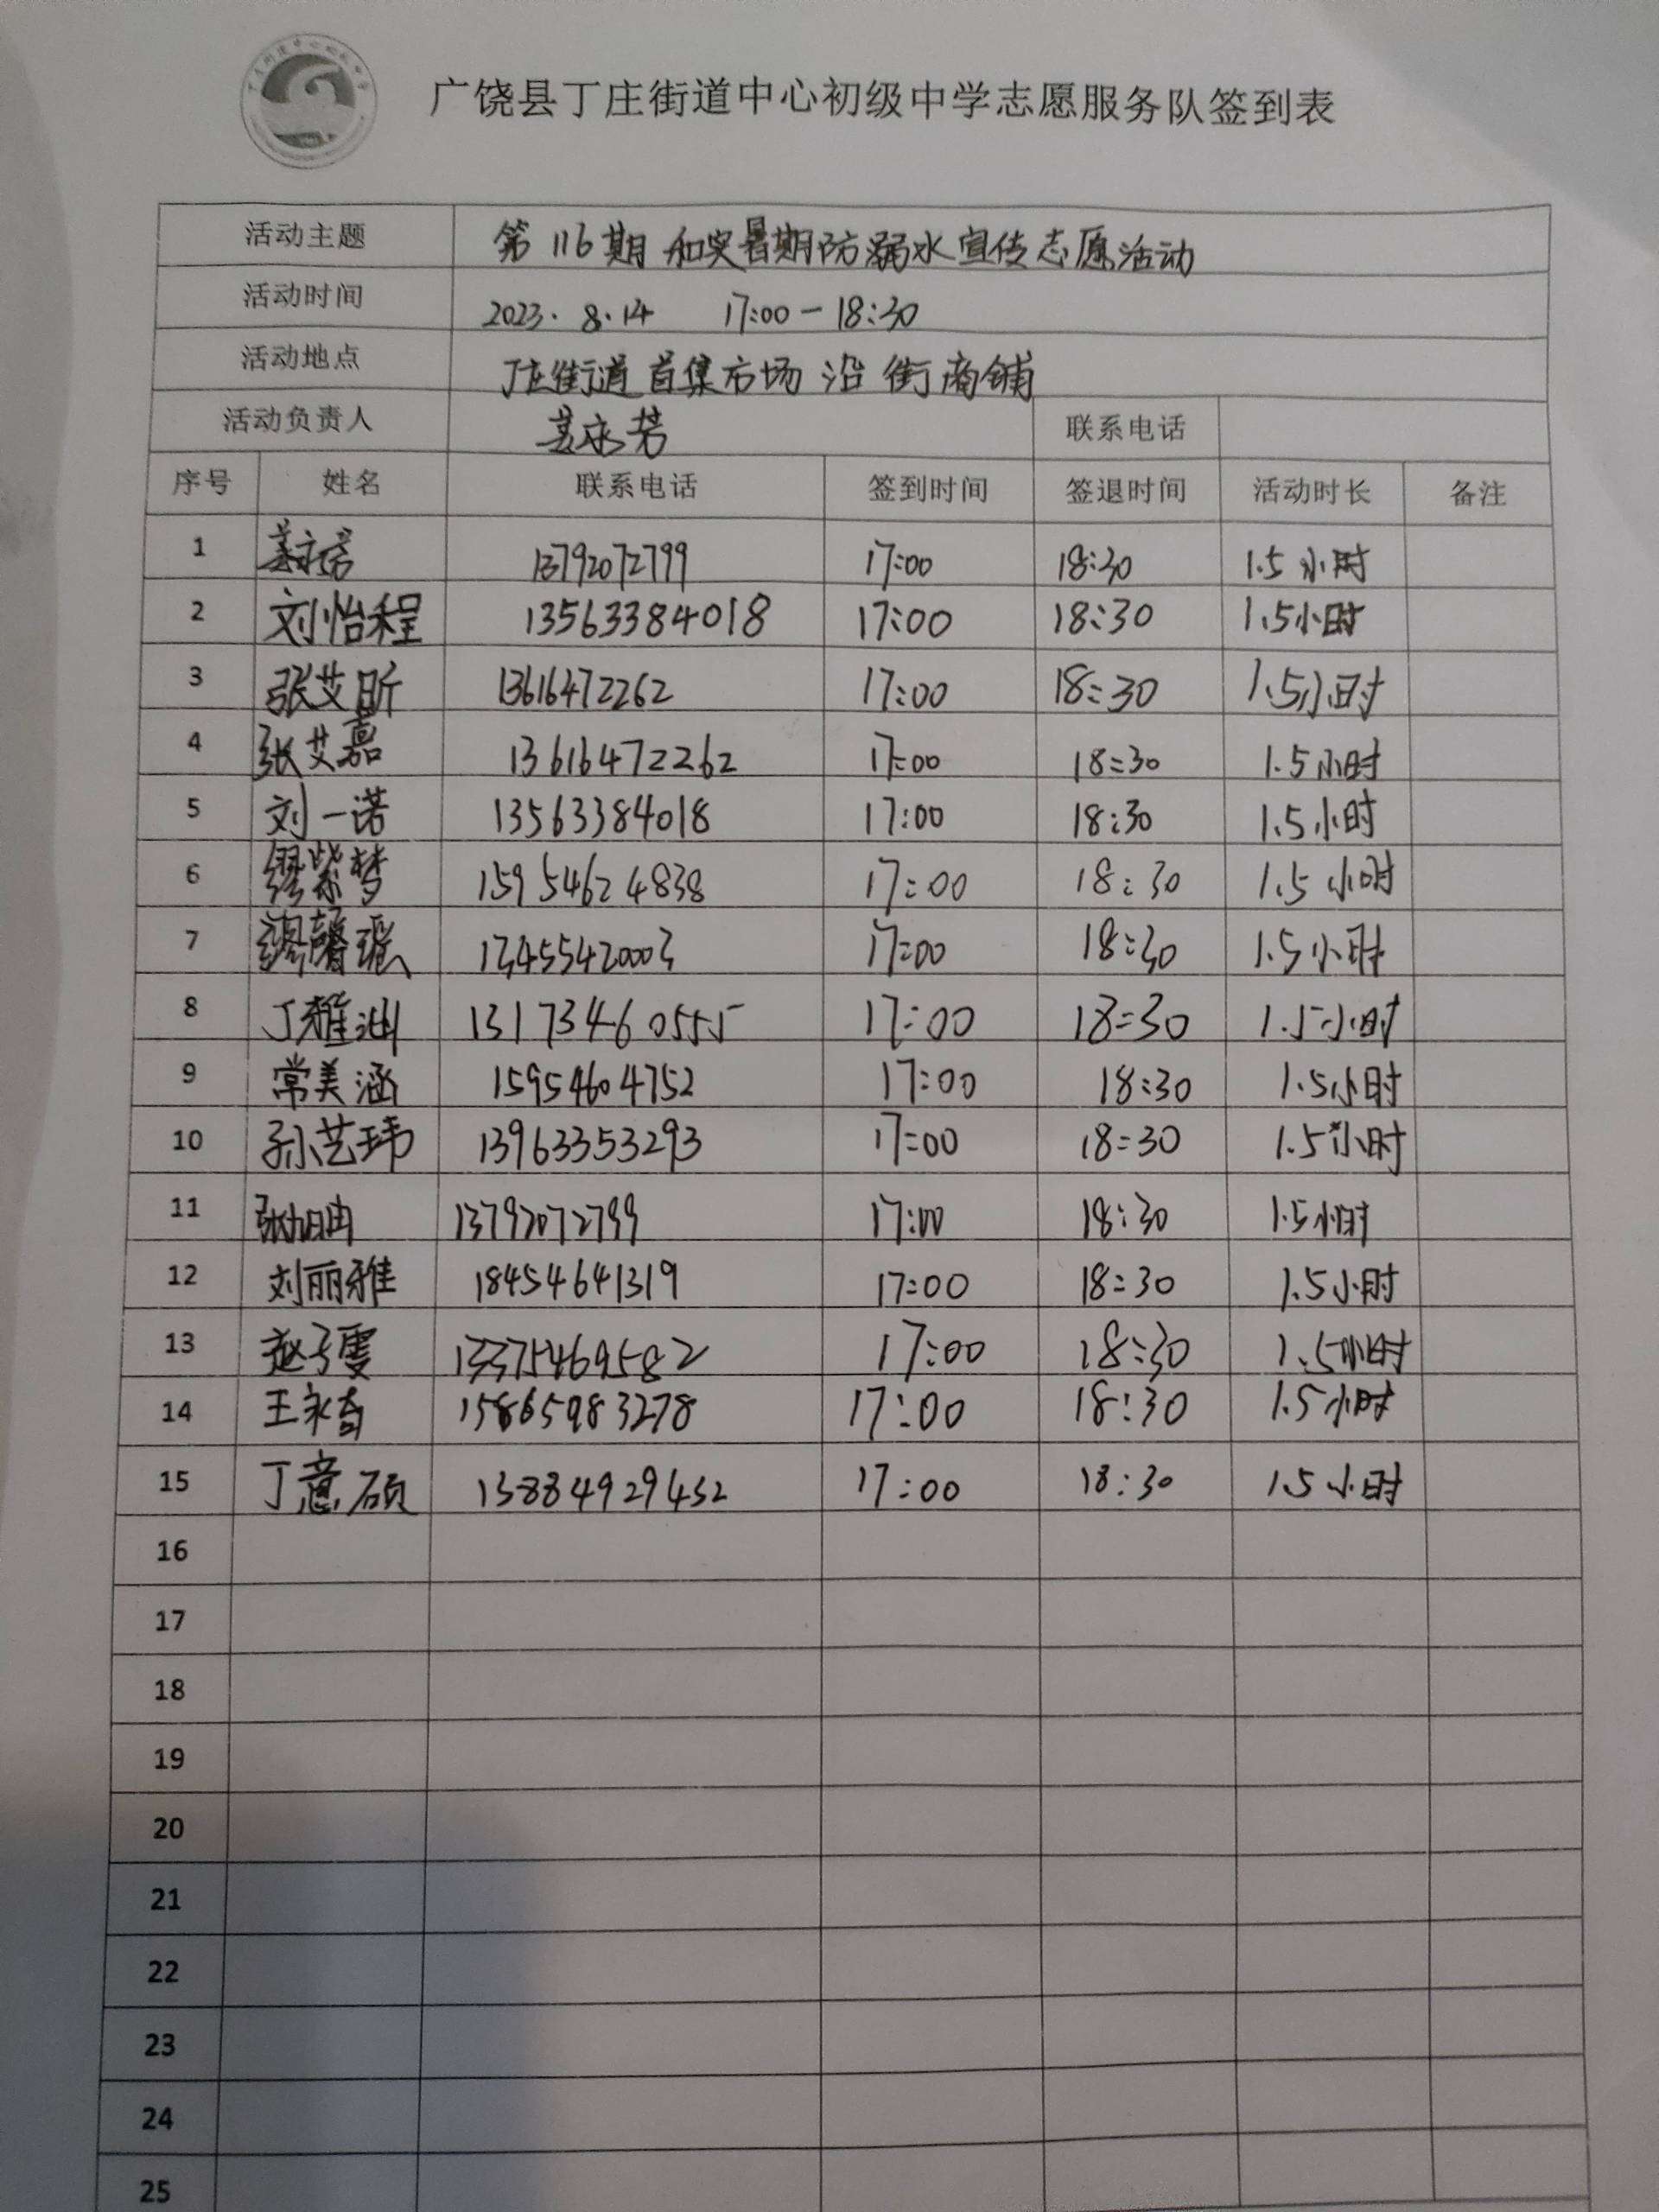 广饶县丁庄街道中心初级中学志愿服务队签到表
活动主题 第116期 和突暑期防溺水宣传志愿活动
活动时间 2023.8.14 17:00-18:30
活动地点 丁庄街道首集市场沿街商铺
活动负责人 姜永芳 联系电话
序号 姓名 联系电话 签到时间 签退时间 活动时长 备注
1 姜永芳 13792072799 17:00 18:30 1.5小时
2 刘怡程 13563384018 17:00 18:30 1.5小时
3 张艾昕 13616472262 17:00 18:30 1.5小时
4 张艾嘉 13616472262 17:00 18:30 1.5小时
5 刘一诺 13563384018 17:00 18:30 1.5小时
6 缪紫梦 15954624838 17:00 18:30 1.5小时
7 缪馨瑶 13455420003 17:00 18:30 1.5小时
8 丁雅洲 13173460555 17:00 18:30 1.5小时
9 常美涵 15954604752 17:00 18:30 1.5小时
10 孙艺玮 13963353293 17:00 18:30 1.5小时
11 13792072799 17:00 18:30 1.5小时
12 刘丽雅 18454641319 17:00 18:30 1.5小时
13 赵子雯 13375469582 17:00 18:30 1.5小时
14 王永奇 15865983278 17:00 18:30 1.5小时
15 丁意硕 13884929432 17:00 18:30 1.5小时
16
17
18
19
20
21
22
23
24
25